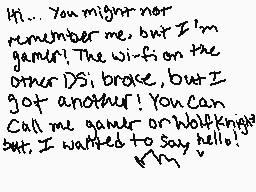 Hi... You might not
remember me, but I'm
gamer! The wi-fi on the
other DSi broke, but I
got another! You can
call me gamer or Wolfknight
but, I wanted to say hello!